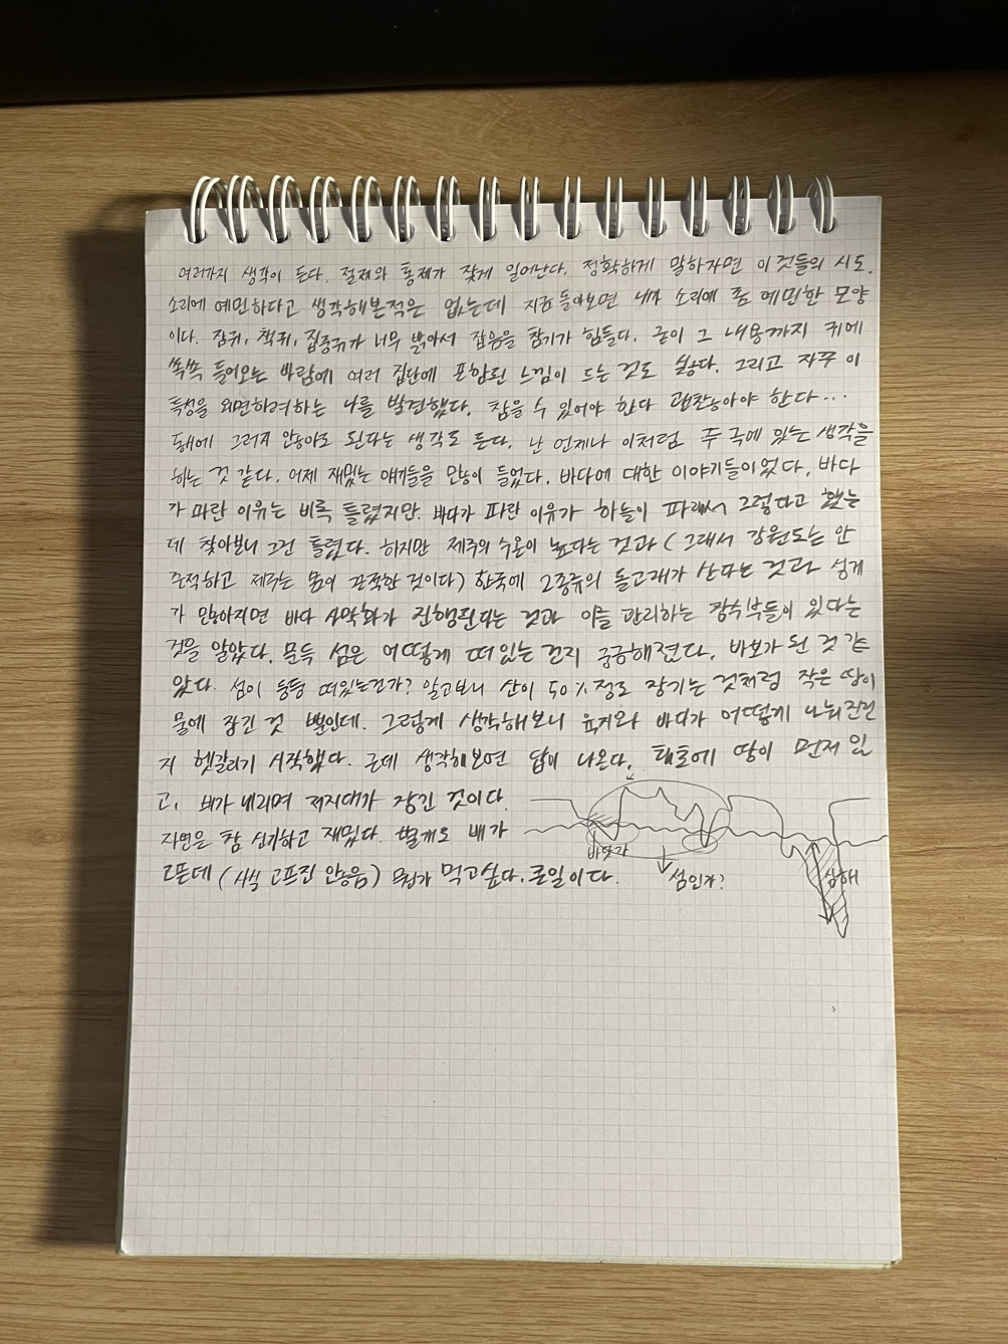 여러가지 생각이 든다. 절제와 통제가 잦게 일어난다. 정확하게 말하자면 이것들의 시도.
소리에 예민하다고 생각해본적은 없는데 지금 돌아보면 내가 소리에 좀 예민한 모양
이다. 잠귀, 책귀, 집중귀가 너무 밝아서 잡음을 참기가 힘들다. 굳이 그 내용까지 귀에
쏙쏙 들어오는 바람에 여러 집단에 포함된 느낌이 드는 것도 싫다. 그리고 자꾸 이
특성을 외면하려하는 나를 발견했다. 참을 수 있어야 한다 괜찮아야 한다...
동시에 그러지 않아도 된다는 생각도 든다. 난 언제나 이처럼 두 극에 있는 생각을
하는 것 같다. 어제 재밌는 얘기들을 많이 들었다. 바다에 대한 이야기들이었다. 바다
가 파란 이유는 비록 틀렸지만. 바다가 파란 이유가 하늘이 파래서 그렇다고 했는
데 찾아보니 그건 틀렸다. 하지만 제주의 수온이 높다는 것과 (그래서 강원도는 안
끈적하고 제주는 몸이 끈적한 것이다) 한국에 2종류의 돌고래가 산다는 것과 성게
가 많아지면 바다 사막화가 진행된다는 것과 이를 관리하는 잠수부들이 있다는
것을 알았다. 문득 섬은 어떻게 떠있는 건지 궁금해졌다. 바보가 된 것 같
았다. 섬이 둥둥 떠있는건가? 알고보니 산이 50%정도 잠기는 것처럼 작은 땅이
물에 잠긴 것 뿐인데. 그렇게 생각해보니 육지와 바다가 어떻게 나눠진건
지 헷갈리기 시작했다. 근데 생각해보면 답이 나온다. 태초에 땅이 먼저 있
고, 비가 내리며 저지대가 잠긴 것이다.
자연은 참 신기하고 재밌다. 별개로 배가
고픈데 (사실 고프진 않음) 뭔가 먹고싶다. 큰일이다.
바닷가
섬인가?
심해